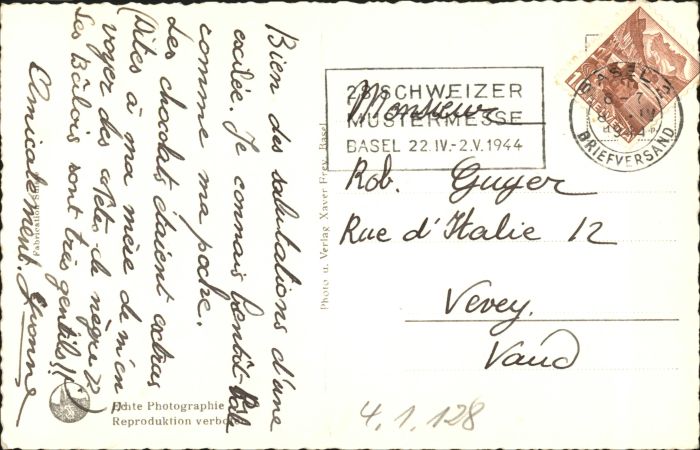 Bien des salutations d'une
exilée. Je connais bientôt Bâle
comme ma poche.
Les chocolats étaient extras
(Dites à ma mère de m'en
voyer des têtes de nègre ??
Les Bâlois sont très gentils!!)
Amicalement. Yvonne
Fabrication
Echte Photographie
Reproduktion verbo
Photo u. Verlag Xaver Frey, Basel
28. SCHWEIZER
MUSTERMESSE
BASEL 22.IV.-2.V.1944
BASEL
BRIEFVERSAND
Monsieur
Rob. Guyer
Rue d'Italie 12
Vevey.
Vaud
4.1.128